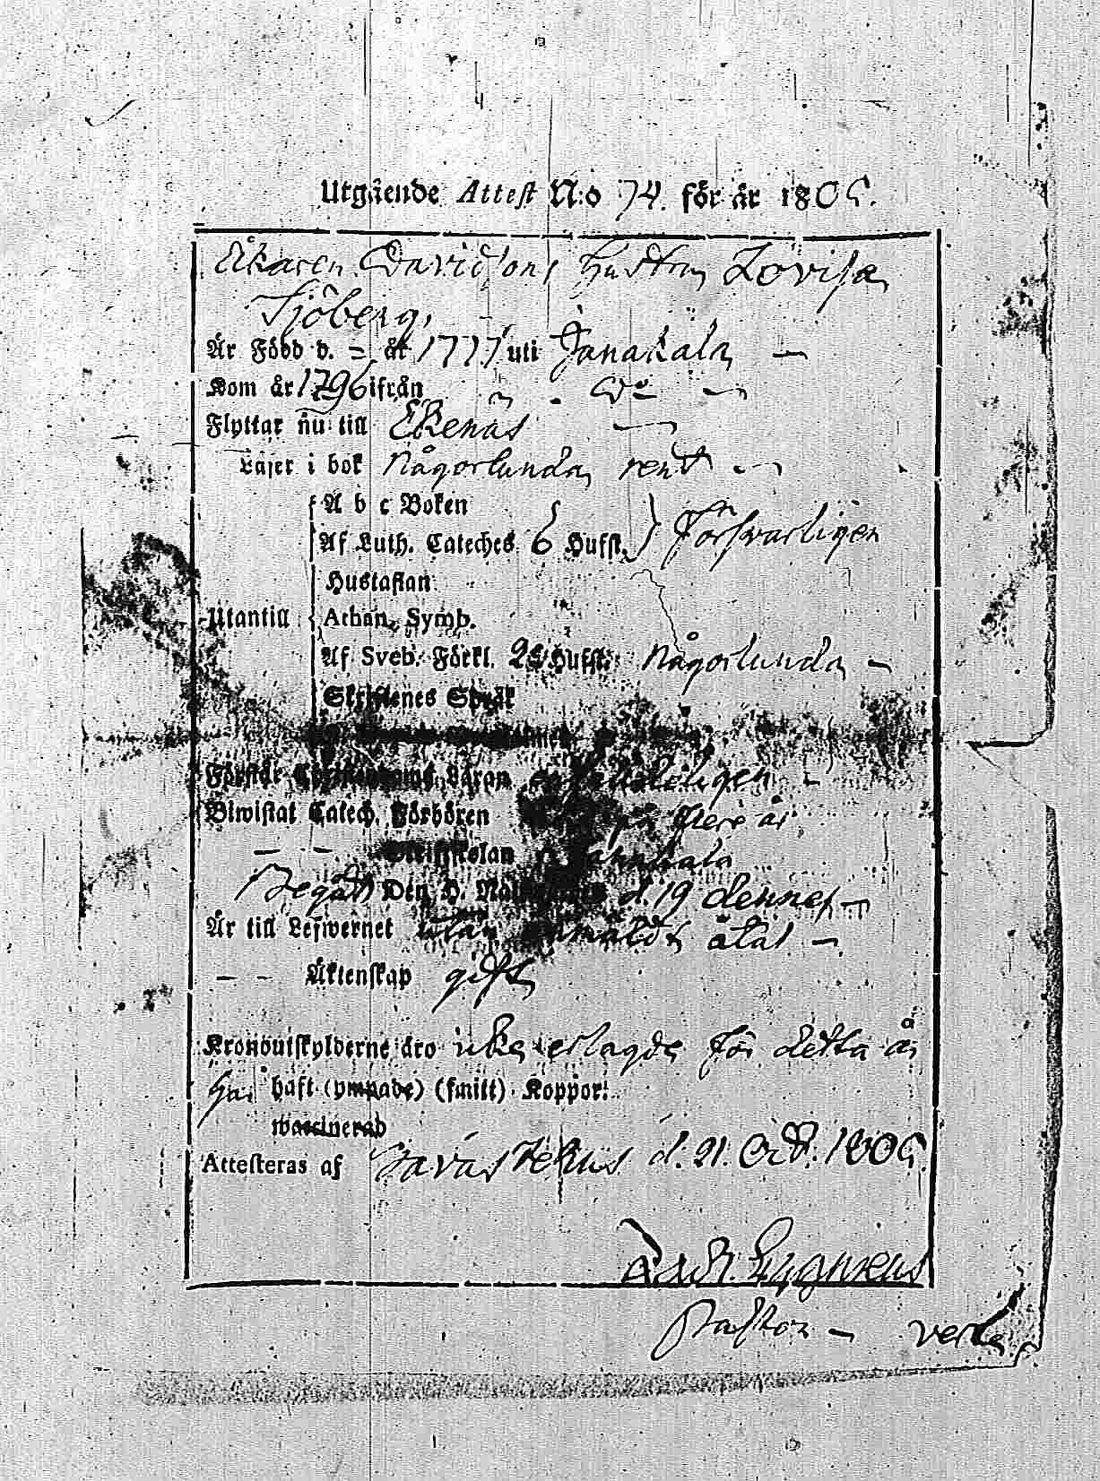 Utgående Attest N:o 74. för år 1805.
Åkaren Davidsons hustru Lovisa
Sjöberg,
Är Född d. – år 1777 uti Janakala –
Kom år 1796 ifrån do –
Flyttar nu till Ekenäs –
Läser i bok Någorlunda rent –
A b c Boken
Af Luth. Cateches 6 Hufst. } Försvarligen
Hustaflan
Utantill Athan. Symb.
Af Sveb. Förkl. Hufst. Någorlunda –
Skriftenes Språk
Förstår Christendoms Läran
Biwistat Catech. Förhören flere år
– – Skriftskolan
Begått Den H. d. 19 dennes –
Är till Lefwernet utan åtal –
– – Äktenskap gift
Kronoutskylderne äro erlagde för detta år
Har haft (ympade) (smitt) Koppor.
waccinerad
Attesteras af Tavastehus d. 21. Oct. 1805.
Pastor –